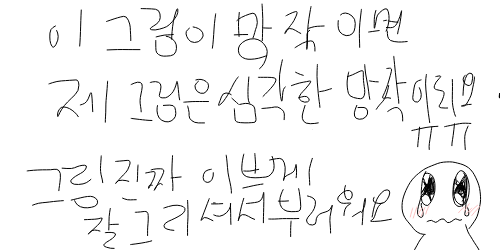 이 그림이 망작 이면
제 그림은 심각한 망작이리요
ㅠㅠ
그림 진짜 이쁘게
잘 그리셔서 부러워요